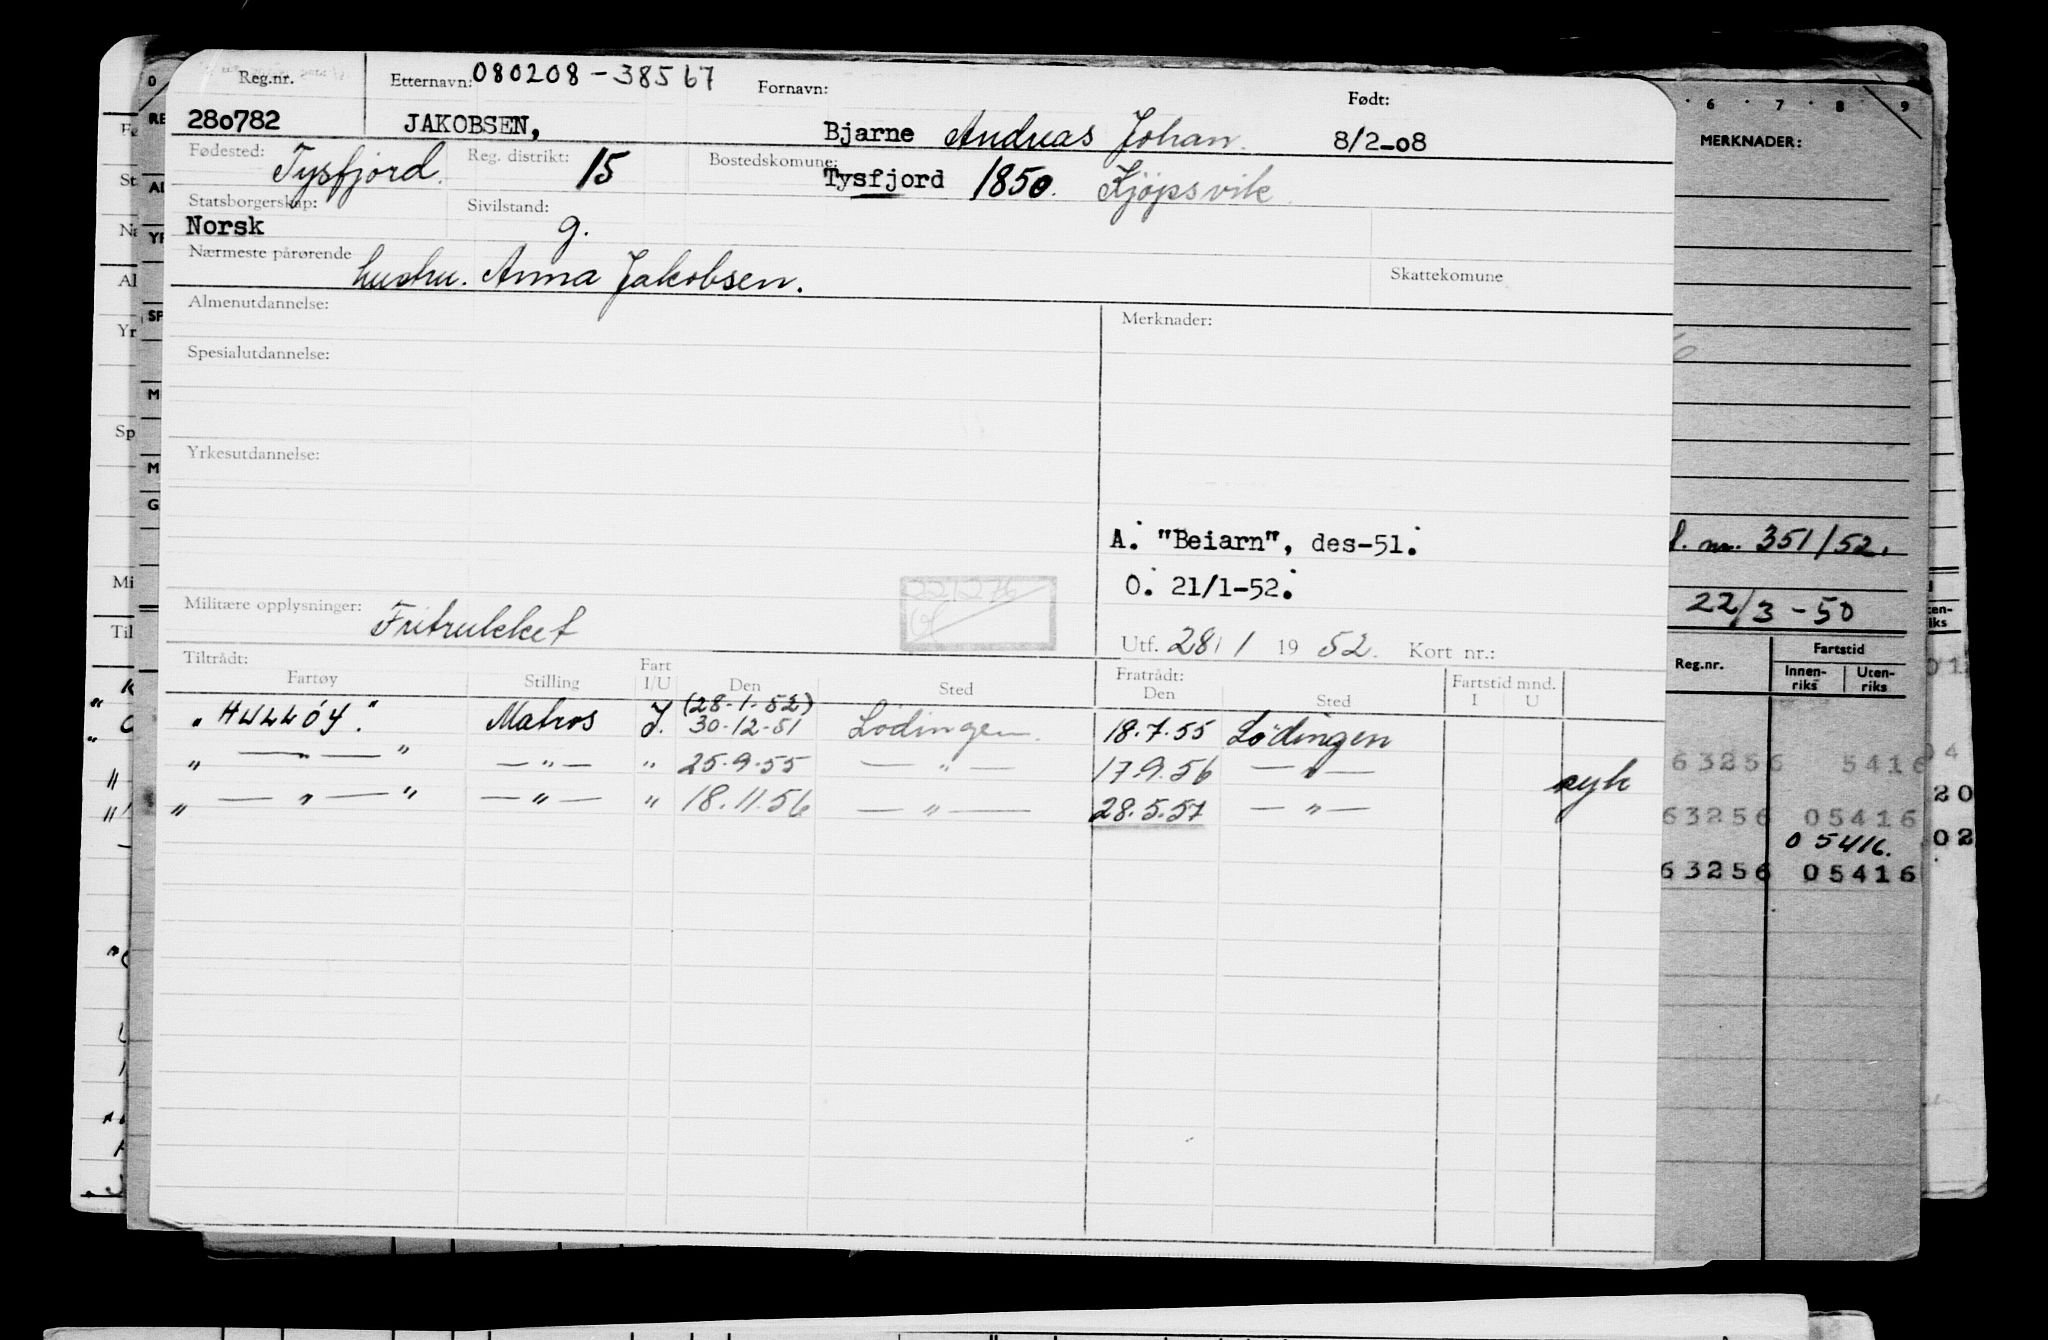 Reg.nr. Etternavn: 080208-38567 Fornavn: Født:
280782 JAKOBSEN, Bjarne Andreas Johan. 8/2-08
Fødested: Tysfjord. Reg. distrikt: 15 Bostedskomune: Tysfjord 1850. Kjøpsvik
Statsborgerskap: Sivilstand:
Norsk g.
Nærmeste pårørende hustru. Anna Jakobsen. Skattekomune
Almenutdannelse: Merknader:
Spesialutdannelse:
Yrkesutdannelse:
A: "Beiarn", des-51.
O: 21/1-52.
Militære opplysninger: Fritrukket
Utf. 28/1 1952. Kort nr.:
Tiltrådt: Fratrådt:
Fartøy Stilling Fart I/U Den Sted Den Sted Fartstid mnd. I U
(28-1-52)
Matros I. 30-12-51 Lødingen. 18.7.55 Lødingen
" — " — " — " 25.9.55 — " — 17.9.56 — " — syk
" — " — " — " — " 18.11.56 — " — 28.5.57 — " —
6 7 8 9
MERKNADER:
nr. 351/52.
22/3-50
Reg.nr. Fartstid
Innen-riks Uten-riks
63256 5416
63256 05416
05416.
63256 05416
20
02